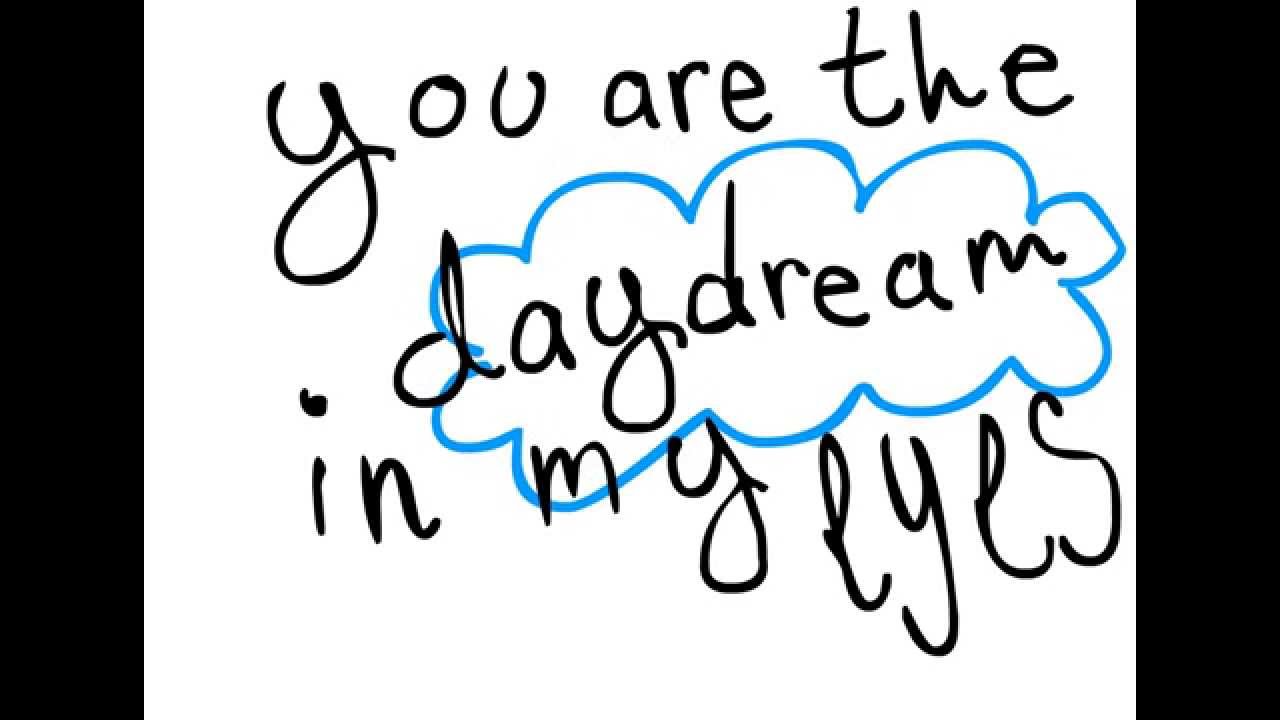 you are the
daydream
in my eyes